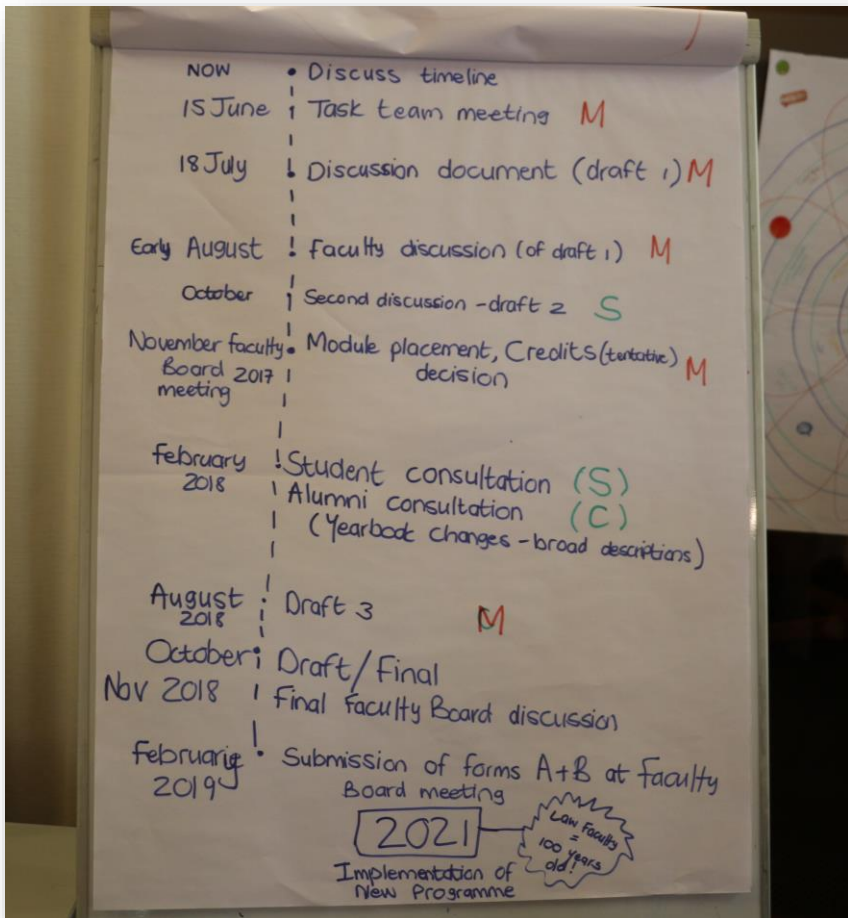 NOW • Discuss timeline
15 June Task team meeting M
18 July Discussion document (draft 1) M
Early August Faculty discussion (of draft 1) M
October Second discussion - draft 2 S
November faculty • Module placement, Credits (tentative)
Board 2017 decision M
meeting
February Student consultation (S)
2018 Alumni consultation (C)
(Yearbook changes - broad descriptions)
August Draft 3 M
2018
October Draft/Final
Nov 2018 Final Faculty Board discussion
Februarie • Submission of forms A+B at faculty
2019 Board meeting
2021
Law Faculty
=
100 years
old!
Implementation of
New Programme